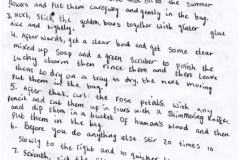 flowers and put them carefully and gently in the bag.
3. Next, stick the golden bones together with glitter glue
nice and tightly.
4. Afterwards, get a clear bowl and get some clear
mixed up soap and a green scrubber to polish the
lucky charm then rince them and then leave
them to dry on a tray to dry, the next moring
Put them in the bag.
5. After that, curl the rose petals with any
Pencil and cut them up in fours with a Shimmering Knife.
and dip them in a bucket of humans blood and then
Put them in the bag.
6. Before you do anything else stir 20 times to
Slowly to the right and to quicker
7. Seventh,